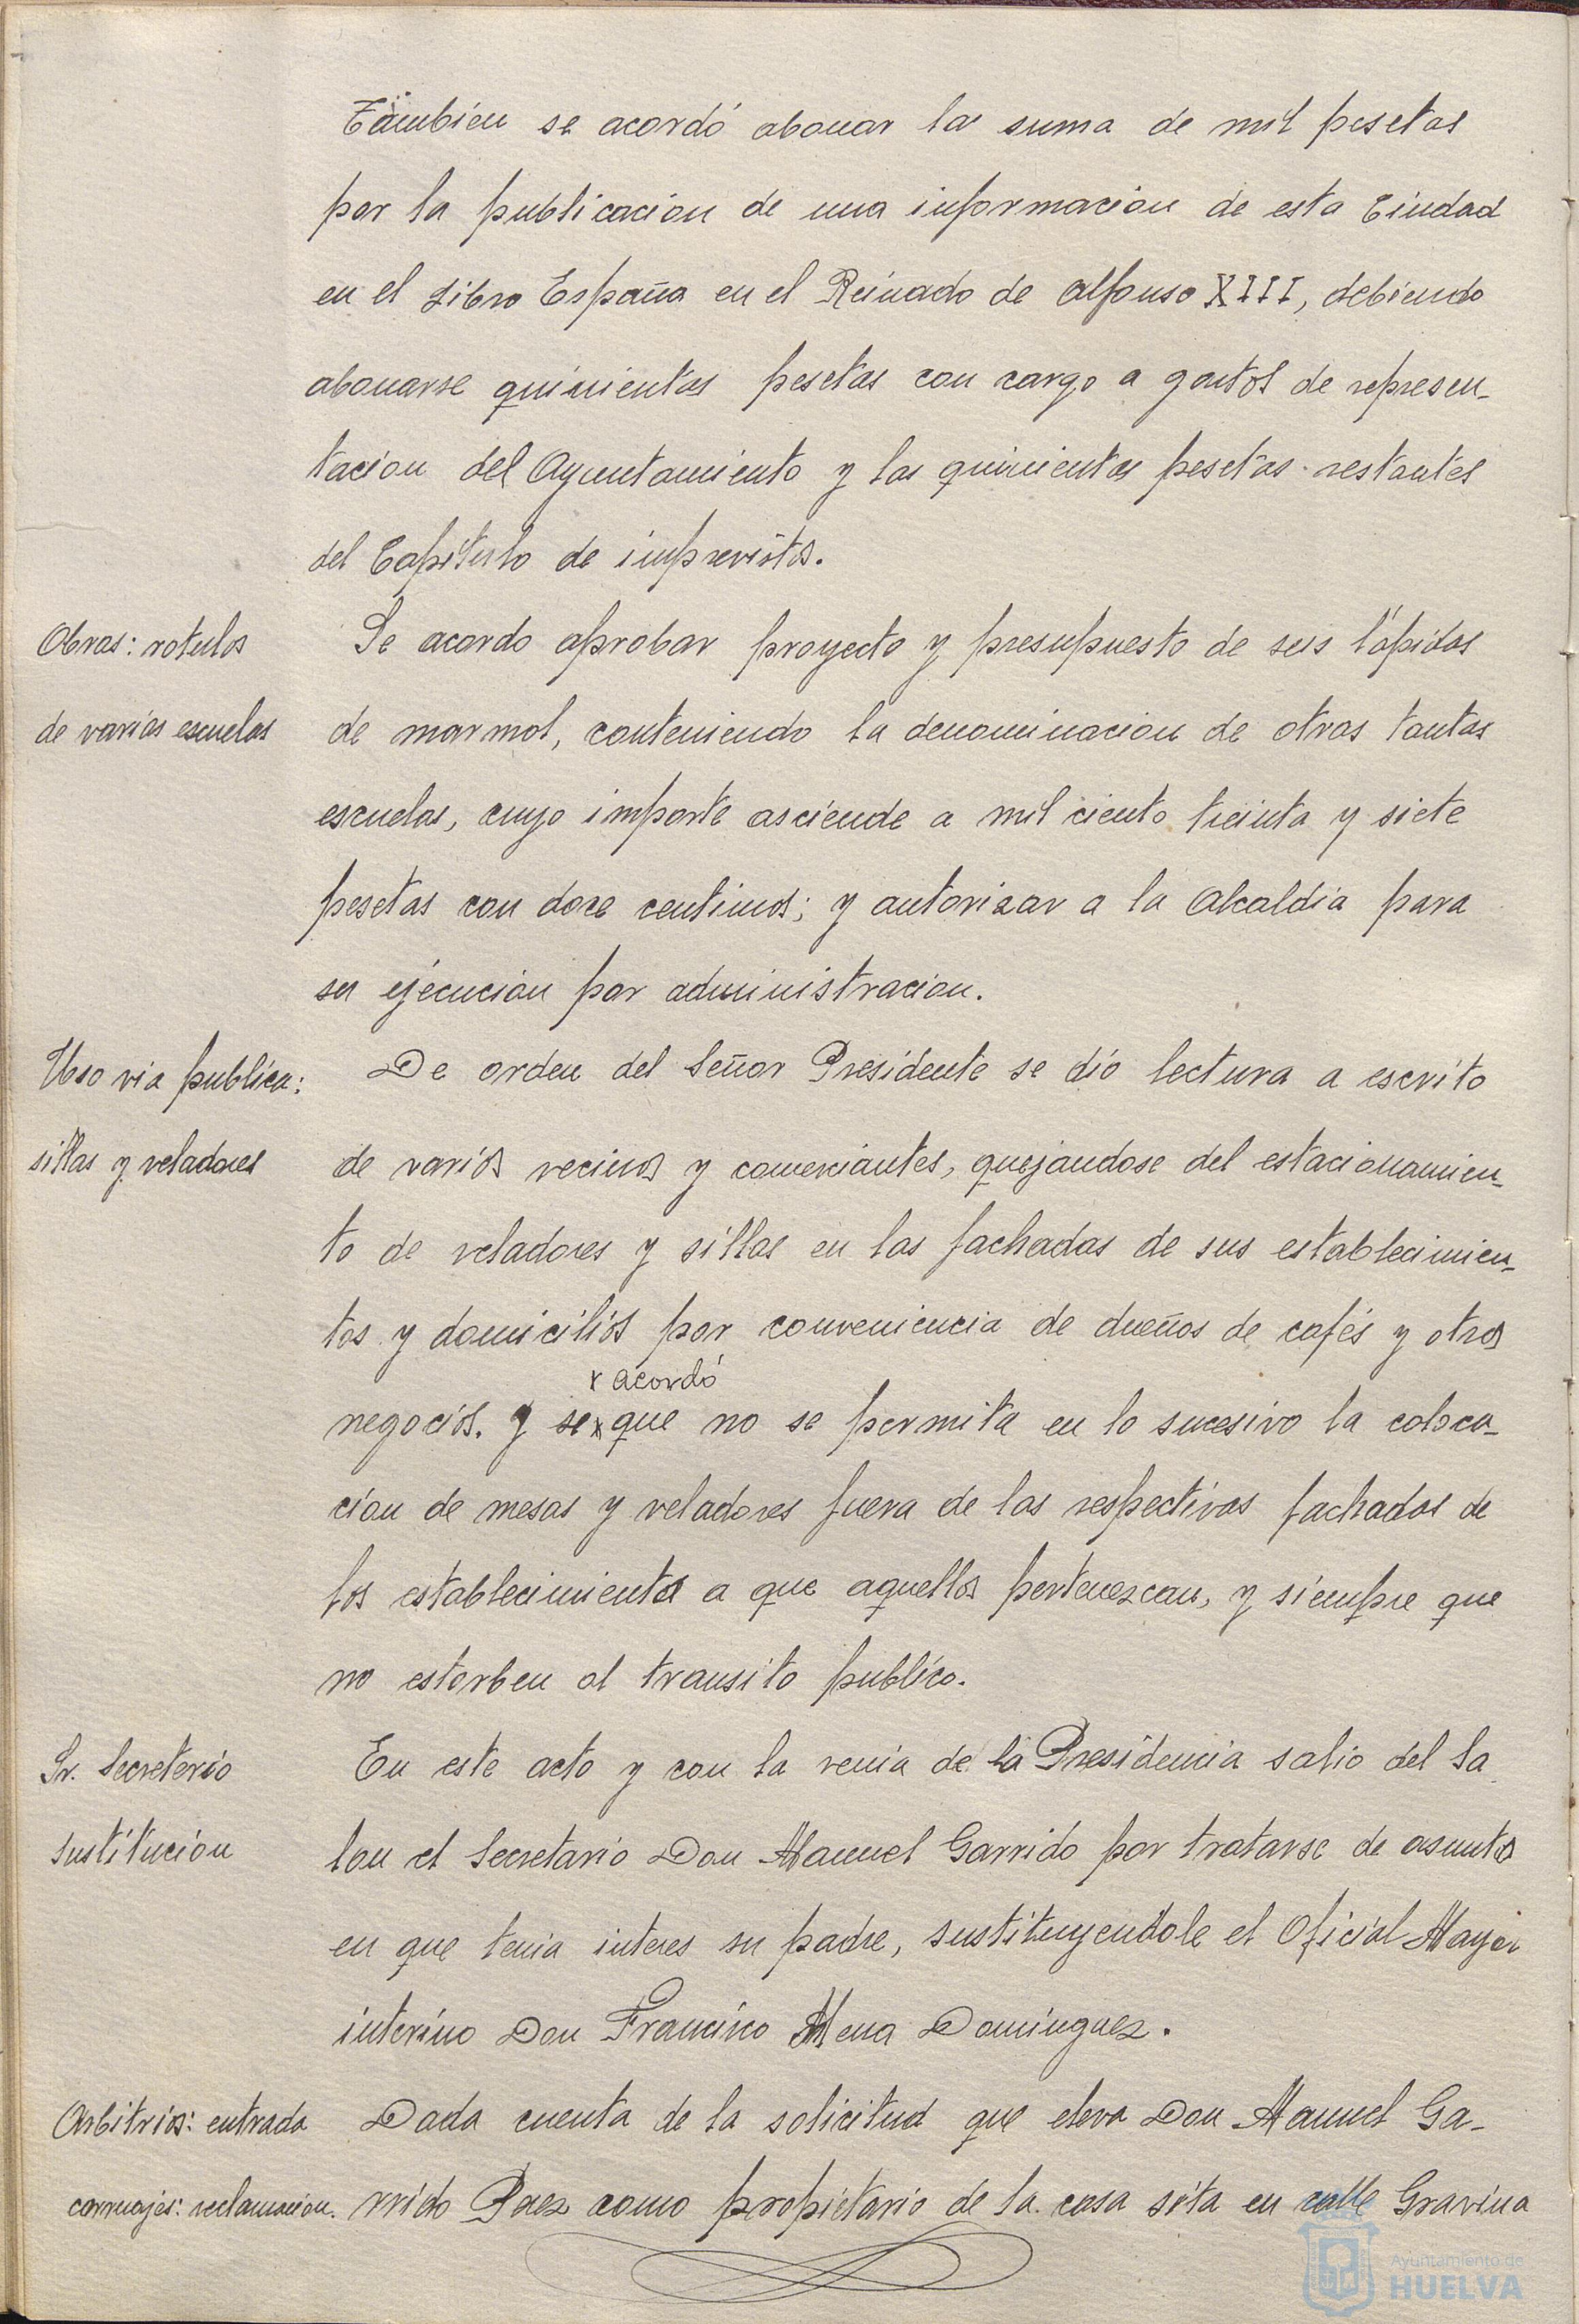 Tambien se acordó abonar la suma de mil pesetas
por la publicacion de una informacion de esta Ciudad
en el Libro España en el Reinado de Alfonso XIII, debiendo
abonarse quinientas pesetas con cargo a gastos de represen-
tacion del Ayuntamiento y las quinientas pesetas restantes
del Capitulo de imprevistos.
Obras: rotulos
de varias escuelas
Se acordo aprobar proyecto y presupuesto de seis lápidas
de marmol, conteniendo la denominacion de otras tantas
escuelas, cuyo importe asciende a mil ciento treinta y siete
pesetas con doce centimos; y autorizar a la Alcaldia para
su ejecucion por administracion.
Uso via publica:
sillas y veladores
De orden del Señor Presidente se dio lectura a escrito
de varios vecinos y comerciantes, quejandose del estacionamien-
to de veladores y sillas en las fachadas de sus establecimien-
tos y domicilios por conveniencia de dueños de cafés y otros
x acordó
negocios. y se x que no se permita en lo sucesivo la coloca-
cion de mesas y veladores fuera de las respectivas fachadas de
los establecimientos a que aquellos pertenezcan, y siempre que
no estorben al transito publico.
Sr. Secretario
sustitucion
En este acto y con la venia de la Presidencia salio del Sa
lon el Secretario Don Manuel Garrido por tratarse de asunto
en que tenia interes su padre, sustituyendole el Oficial Mayor
interino Don Francisco Mena Dominguez.
Arbitrios: entrada
carruajes: reclamacion.
Dada cuenta de la solicitud que eleva Don Manuel Ga-
rrido Perez como propietario de la casa sita en calle Gravina
Ayuntamiento de
HUELVA